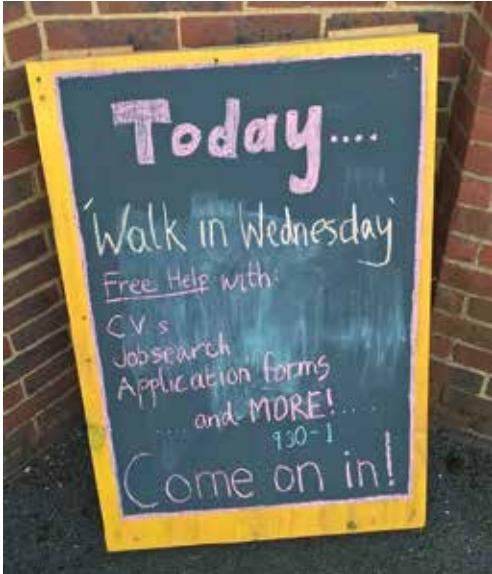 Today....
'Walk in Wednesday'
Free Help with:
CVs
Jobsearch
Application forms
.... and MORE! ....
930-1
Come on in!